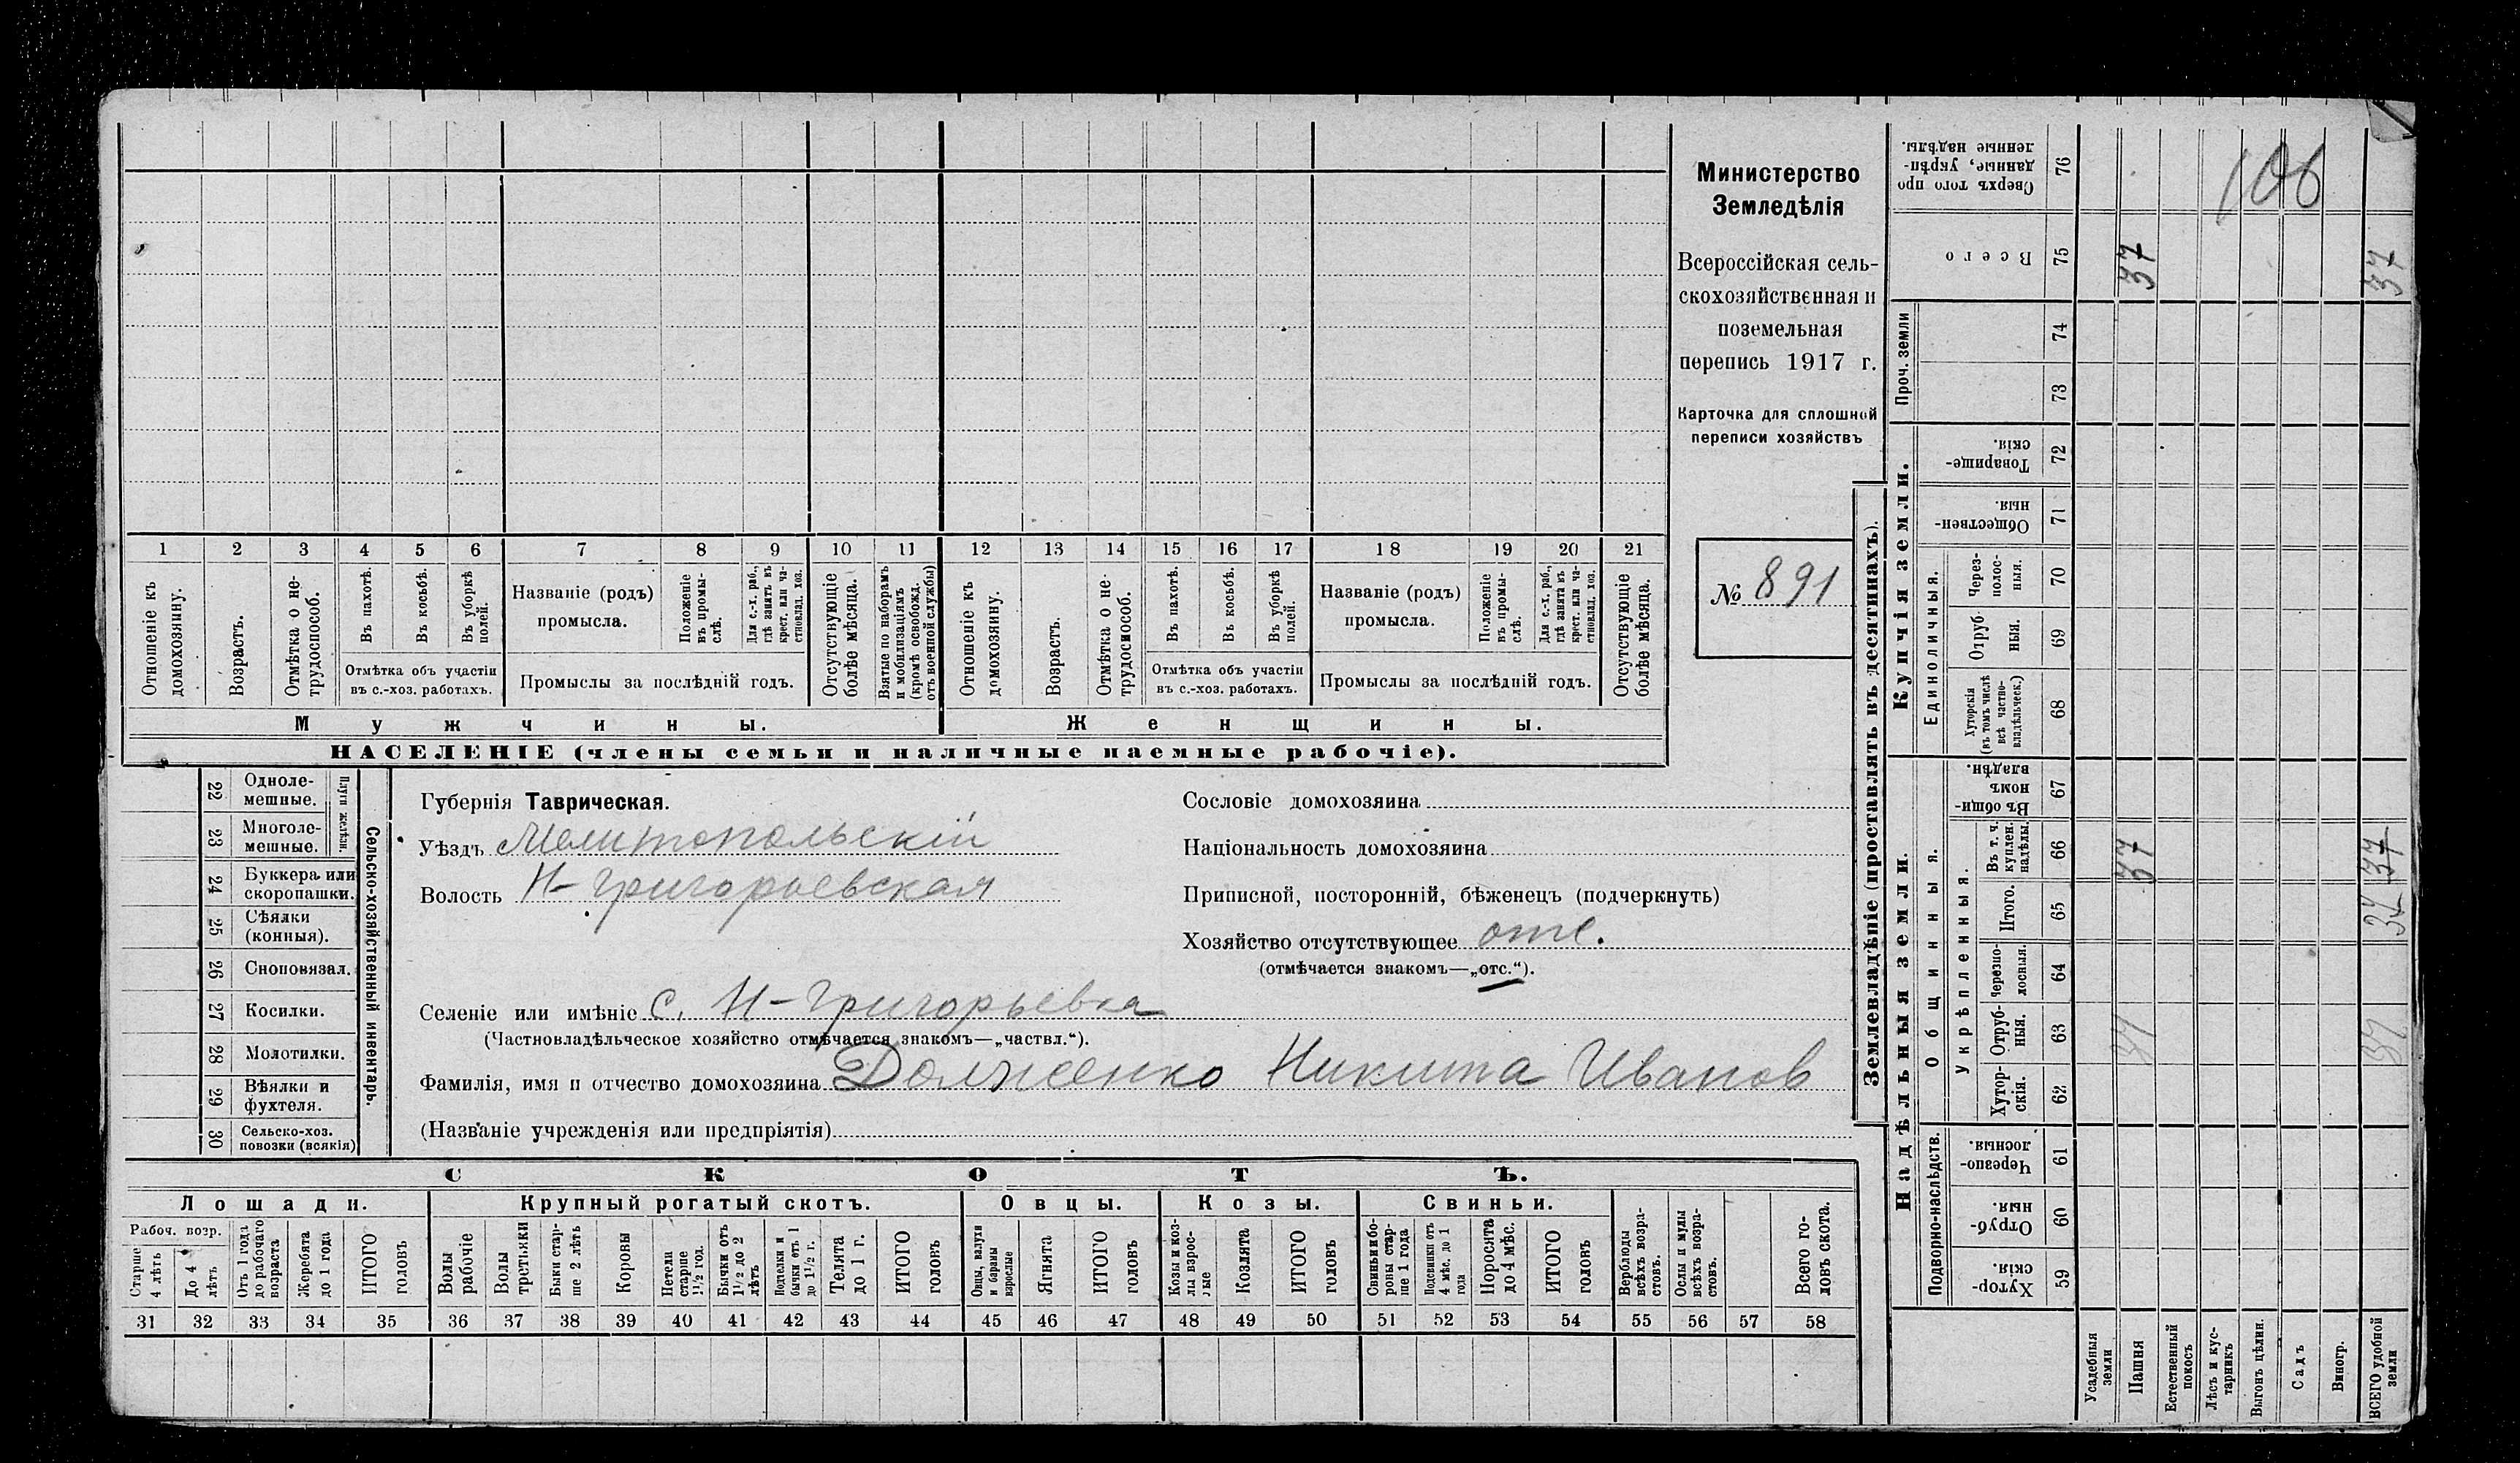 1 2 3 4 5 6 7 8 9 10 11 12 13 14 15 16 17 18 19 20 21
Отношеніе къ домохозяину.
Возрастъ.
Отмѣтка о не-
трудоспособ.
Въ пахотѣ.
Въ косьбѣ.
Въ уборкѣ
полей.
Отмѣтка объ участіи
въ с.-хоз. работахъ.
Названіе (родъ)
промысла.
Положеніе
въ промы-
слѣ.
Для с.-х. раб.,
гдѣ занятъ въ
крест. или ча-
стновлад. хоз.
Промыслы за послѣдній годъ.
Отсутствующіе
болѣе мѣсяца.
Взятые по наборамъ
и мобилизаціямъ
(кромѣ освобожд.
отъ военной службы)
Отношеніе къ
домохозяину.
Возрастъ.
Отмѣтка о не-
трудоспособ.
Въ пахотѣ.
Въ косьбѣ.
Въ уборкѣ
полей.
Отмѣтка объ участіи
въ с.-хоз. работахъ.
Названіе (родъ)
промысла.
Положеніе
въ промы-
слѣ.
Для с.-х. раб.,
гдѣ занята въ
крест. или ча-
стновлад. хоз.
Промыслы за послѣдній годъ.
Отсутствующіе
болѣе мѣсяца.
Мужчины.
Женщины.
НАСЕЛЕНІЕ (члены семьи и наличные наемные рабочіе).
Министерство
Земледѣлія
Всероссійская сель-
скохозяйственная и
поземельная
перепись 1917 г.
Карточка для сплошной
переписи хозяйствъ
№ 891
22 Одноле-
мешные.
23 Многоле-
мешные.
Плуги желѣзн.
24 Буккера или
скоропашки.
25 Сѣялки
(конныя).
26 Сноповязал.
27 Косилки.
28 Молотилки.
29 Вѣялки и
фухтеля.
30 Сельско-хоз.
повозки (всякія)
Сельско-хозяйственный инвентарь.
Губернія Таврическая.
Уѣздъ Мелитопольскій
Волость Н-Григорьевская
Селеніе или имѣніе с. Н-Григорьевка
(Частновладѣльческое хозяйство отмѣчается знакомъ—„частвл.“).
Фамилія, имя и отчество домохозяина Долженко Никита Иванов
(Названіе учрежденія или предпріятія)
Сословіе домохозяина
Національность домохозяина
Приписной, посторонній, бѣженецъ (подчеркнуть)
Хозяйство отсутствующее отс.
(отмѣчается знакомъ—„отс.“).
СКОТЪ.
Лошади.
Крупный рогатый скотъ.
Овцы.
Козы.
Свиньи.
Рабоч. возр.
Старше
4 лѣтъ
До 4
лѣтъ
Отъ 1 года
до рабочаго
возраста
Жеребята
до 1 года
ИТОГО
головъ
Волы
рабочіе
Волы
третьяки
Быки стар-
ше 2 лѣтъ
Коровы
Нетели
старше
1½ год.
Бычки отъ
1½ до 2
лѣтъ
Подтелки и
бычки отъ 1
до 1½ г.
Телята
до 1 г.
ИТОГО
головъ
Овцы, валухи
и бараны
взрослые
Ягнята
ИТОГО
головъ
Козы и коз-
лы взрос-
лые
Козлята
ИТОГО
головъ
Свиньи и бо-
ровы стар-
ше 1 года
Подсвинки отъ
4 мѣс. до 1
года
Поросята
до 4 мѣс.
ИТОГО
головъ
Верблюды
всѣхъ возра-
стовъ.
Ослы и мулы
всѣхъ возра-
стовъ.
Всего го-
ловъ скота.
31 32 33 34 35 36 37 38 39 40 41 42 43 44 45 46 47 48 49 50 51 52 53 54 55 56 57 58
Землевладѣніе (проставлять въ десятинахъ).
Сверхъ того про
данные, укрѣп-
ленные надѣлы.
76
106
Всего
75
37
37
Проч. земли
74
73
Купчія земли.
Товарище-
скія.
72
Обществен-
ныя.
71
Единоличныя.
Через-
полос-
ныя.
70
Отруб
ныя.
69
Хуторскія
(въ томъ числѣ
всѣ частно-
владѣльческ.)
68
Надѣльныя земли.
Общинныя.
Въ общи-
номъ
владѣн.
67
Укрѣпленныя.
Въ т. ч.
куплен.
надѣлы.
66
37
37
Итого.
65
37
Черезпо-
лосныя.
64
Отруб-
ныя.
63
37
37
Хутор-
скія.
62
Подворно-наслѣдств.
Черезпо-
лосныя.
61
Отруб-
ныя.
60
Хутор-
скія.
59
Усадебныя
земли
Пашня
Естественный
покосъ
Лѣсъ и кус-
тарникъ
Выгонъ цѣлин.
Садъ
Виногр.
ВСЕГО удобной
земли